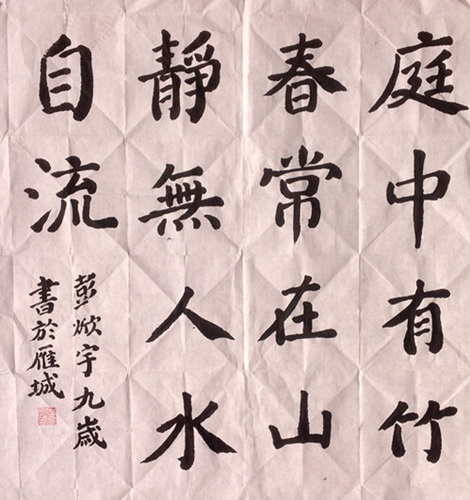 庭中有竹
春常在山
靜無人水
自流
彭焮宇九歲
書於雁城